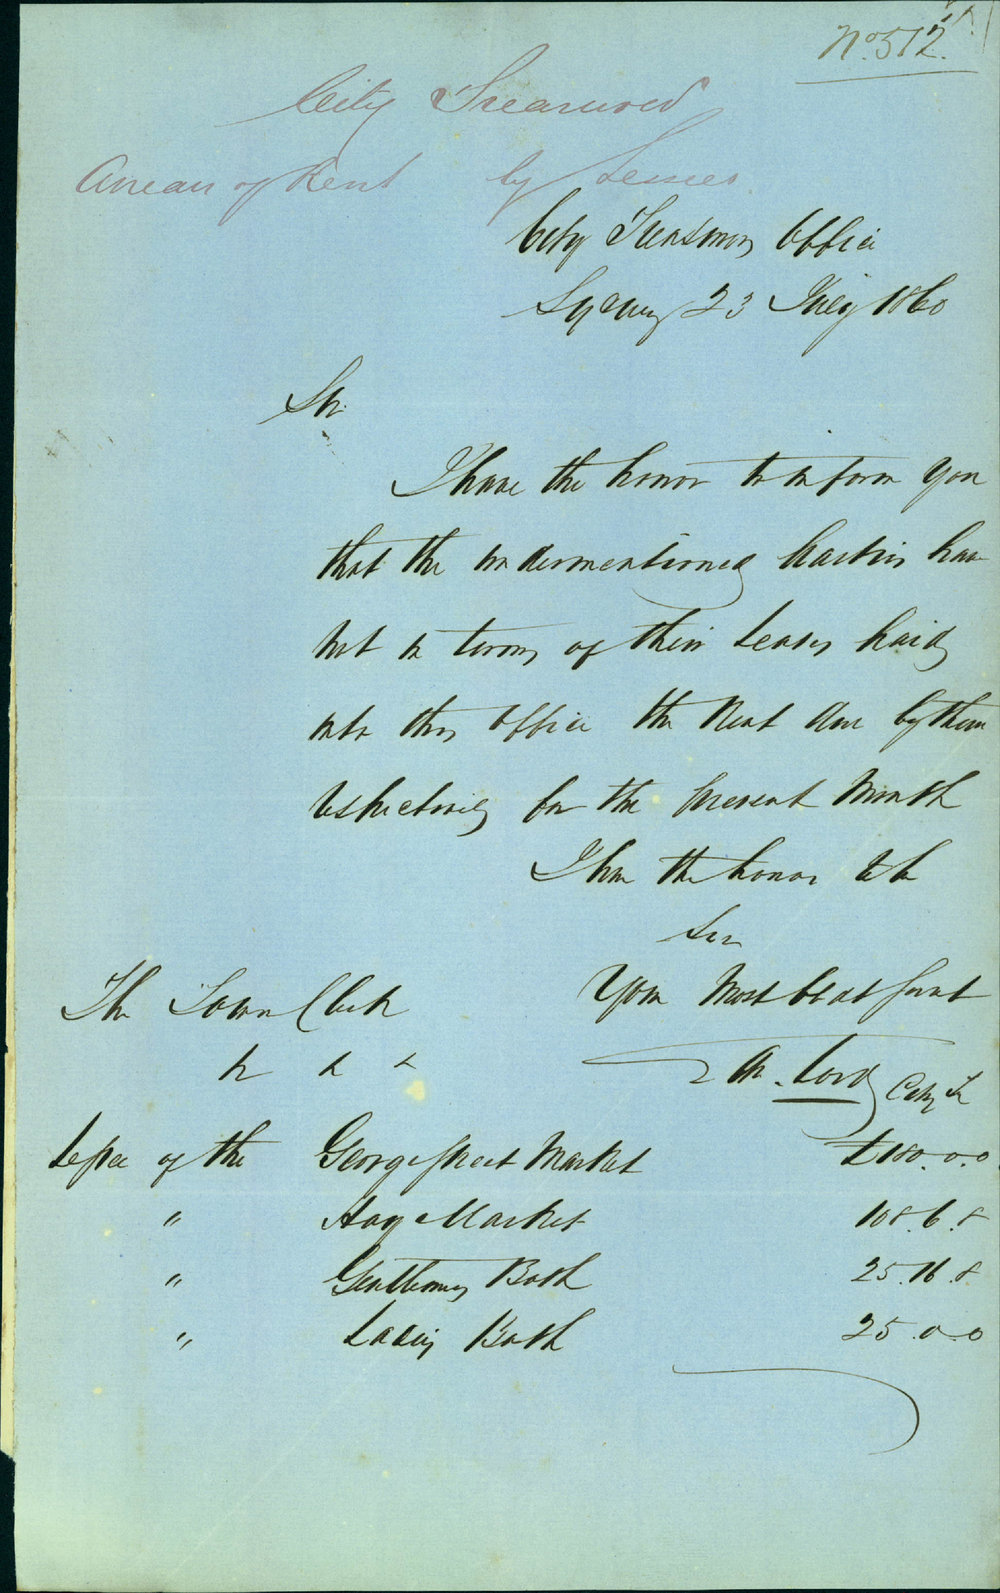 No. 512
City Treasurer
Arrears of Rent by Lessees
City Treasurers Office
Sydney 23 July 1860
Sir
I have the honor to inform you
that the undermentioned Parties have
not in terms of their Leases paid
into this Office the Rent due by them
respectively for the present Month
I have the honor to be
Sir
Your Most Obedt Servt
The Town Clerk
W. Lord City Tr
Lessee of the George Street Market £180.0.0
" Hay Market 108.6.8
" Gentlemens Bath 25.16.8
" Ladies Bath 25.0.0